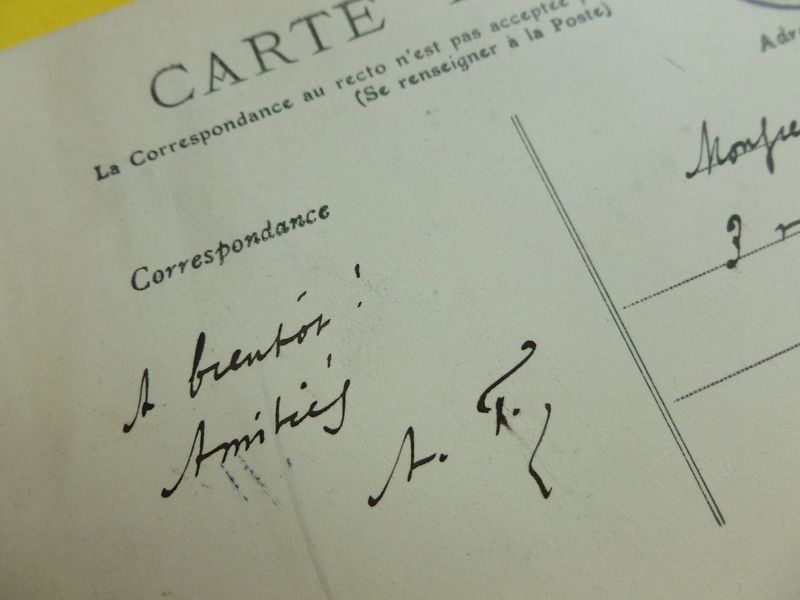 CARTE
La Correspondance au recto n'est pas acceptée
(Se renseigner à la Poste)
Correspondance
A bientôt !
Amitiés
A.
Adr
Monsie
3 r